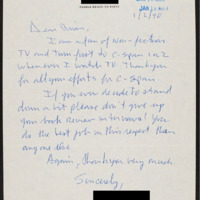 Dear Brian,
I am a fan of non-fiction
TV and turn first to C-span 1 or 2
whenever I watch TV. Thank you
for all your efforts for C-span.
If you ever decide to stand
down a bit please don't give up
your book review interviews! You
do the best job in this respect than
anyone else.
Again, thank you very much.
Sincerely,